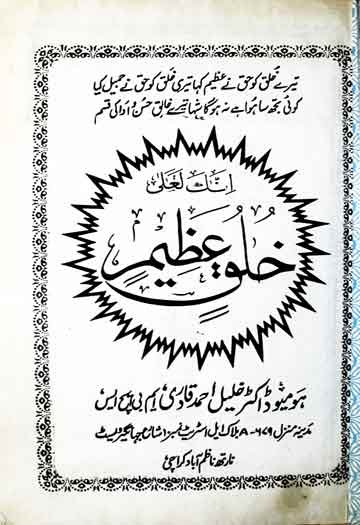 تیرے خُلق کو حق نے عظیم کہا تیری خَلق کو حق نے جمیل کیا
کوئی تجھ سا ہوا ہے نہ ہوگا شہا تیرے خالقِ حسن و ادا کی قسم
اِنَّكَ لَعَلٰى
خُلُقٍ عَظِيْمٍ
ہومیو ڈاکٹر خلیل احمد قادری ایم بی ایچ ایس
مدینہ منزل ۶۷۹-A بلاک ایل اسٹریٹ نمبر ۱ شاہراہ جہانگیر ویسٹ
نارتھ ناظم آباد کراچی